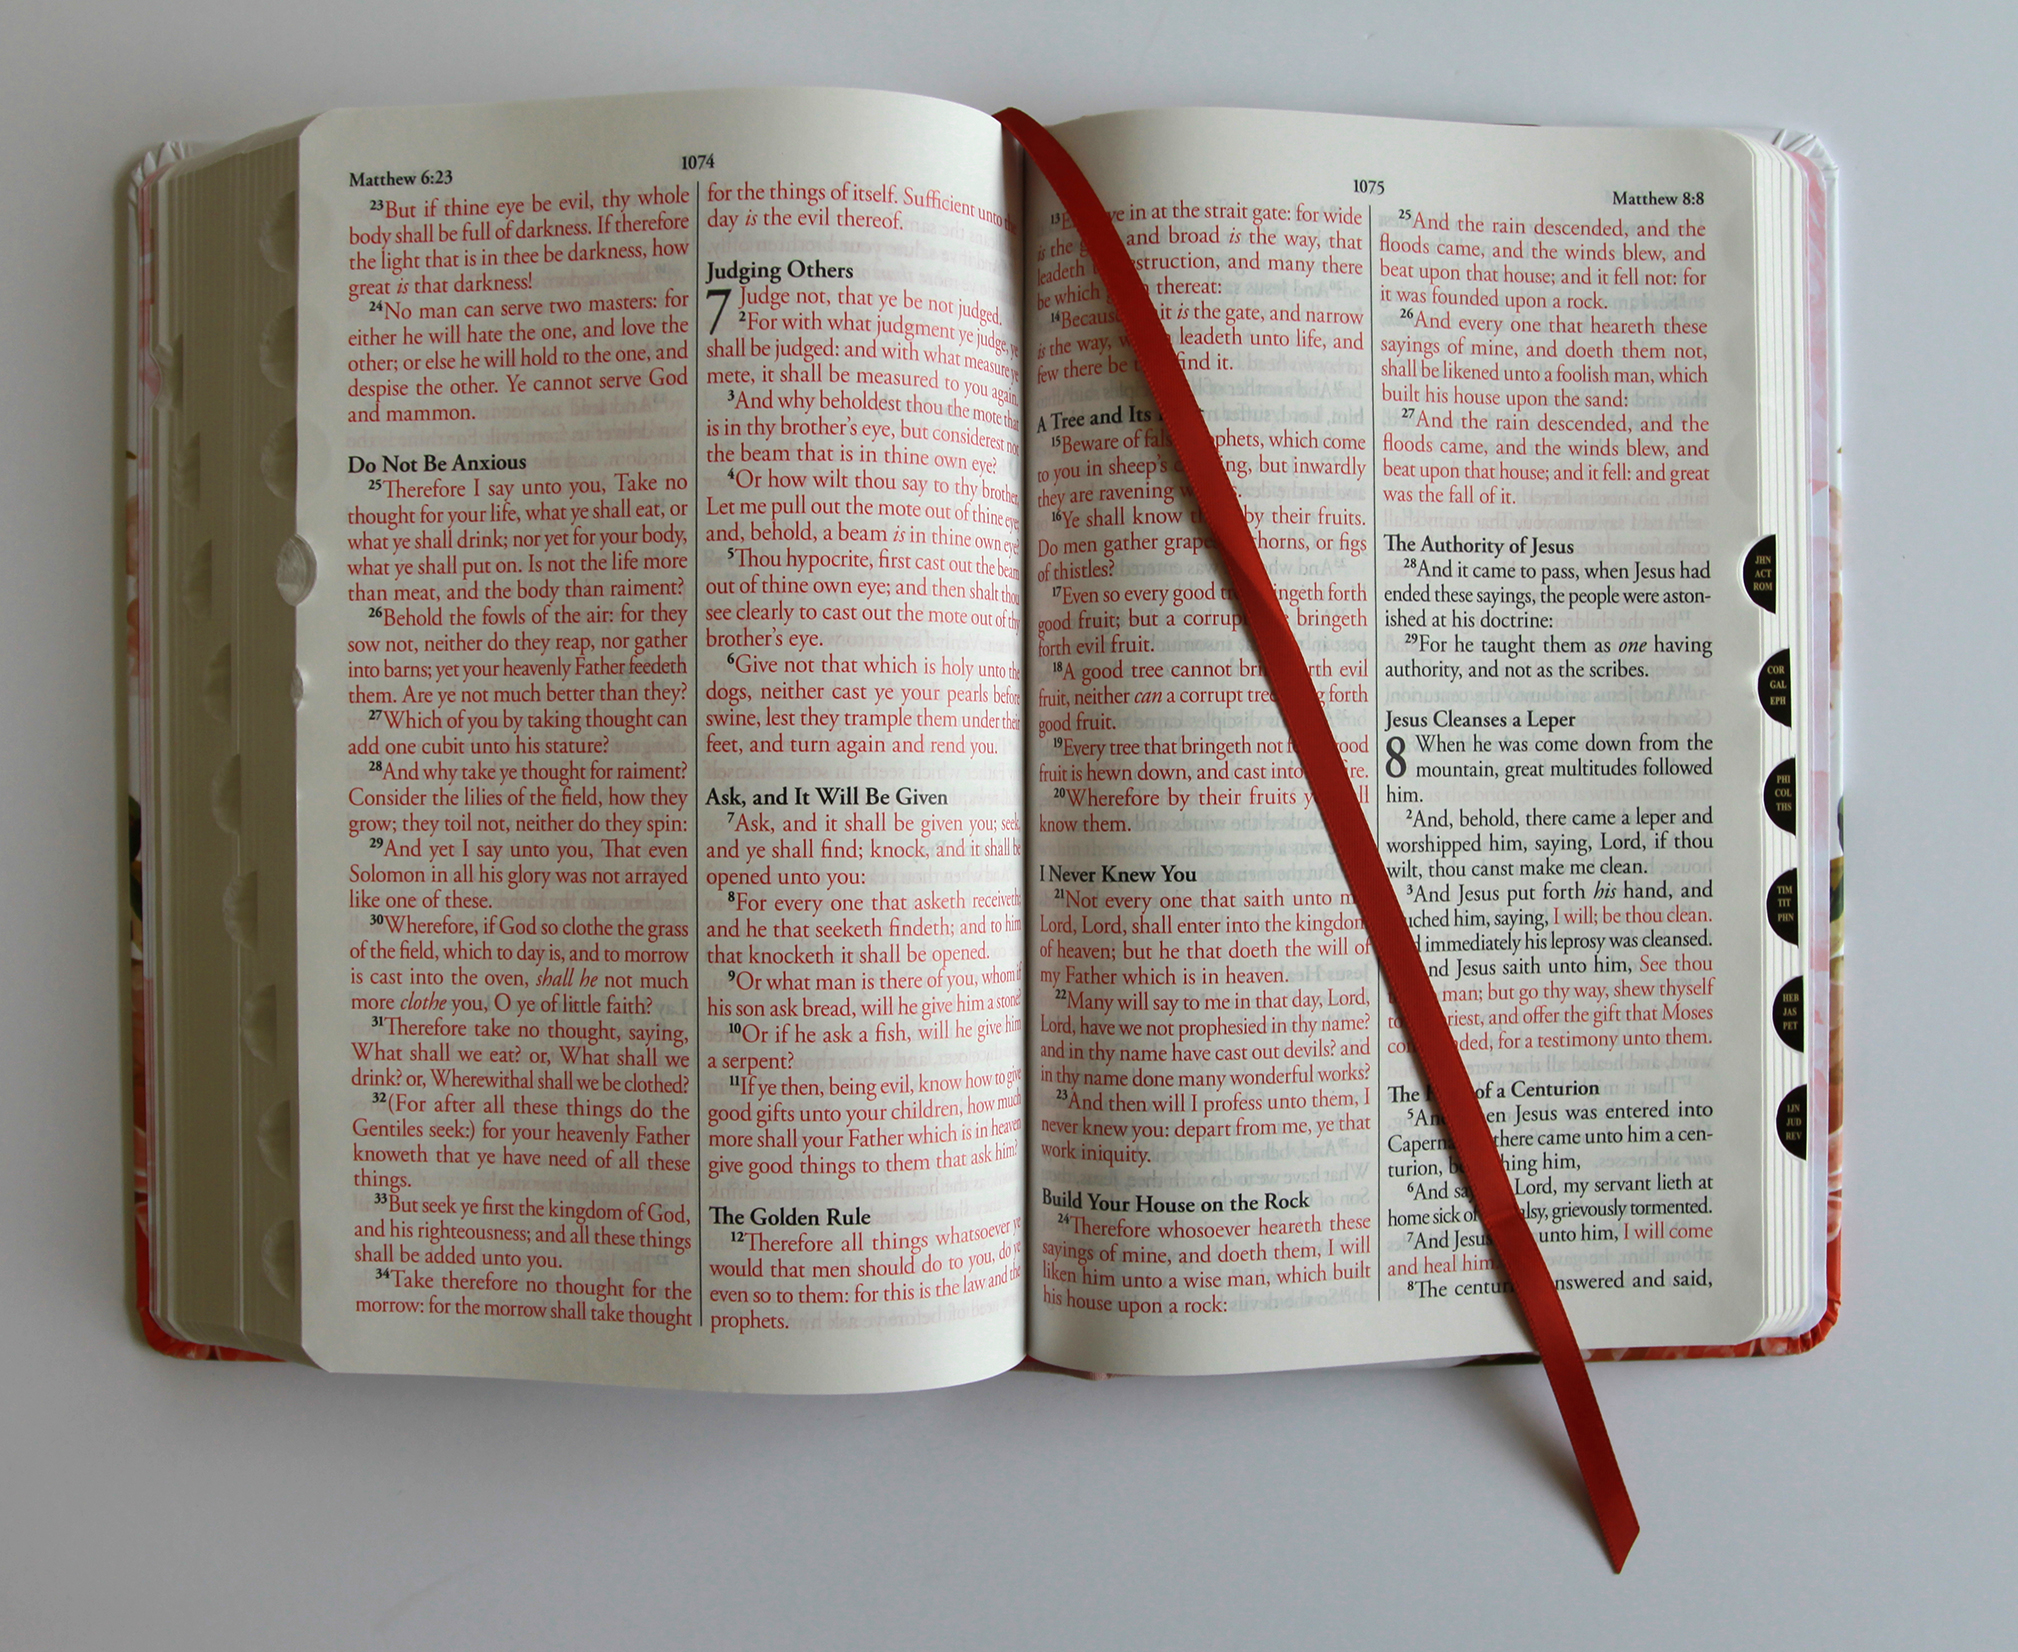 Matthew 6:23
1074
23But if thine eye be evil, thy whole
body shall be full of darkness. If therefore
the light that is in thee be darkness, how
great is that darkness!
24No man can serve two masters: for
either he will hate the one, and love the
other; or else he will hold to the one, and
despise the other. Ye cannot serve God
and mammon.
Do Not Be Anxious
25Therefore I say unto you, Take no
thought for your life, what ye shall eat, or
what ye shall drink; nor yet for your body,
what ye shall put on. Is not the life more
than meat, and the body than raiment?
26Behold the fowls of the air: for they
sow not, neither do they reap, nor gather
into barns; yet your heavenly Father feedeth
them. Are ye not much better than they?
27Which of you by taking thought can
add one cubit unto his stature?
28And why take ye thought for raiment?
Consider the lilies of the field, how they
grow; they toil not, neither do they spin:
29And yet I say unto you, That even
Solomon in all his glory was not arrayed
like one of these.
30Wherefore, if God so clothe the grass
of the field, which to day is, and to morrow
is cast into the oven, shall he not much
more clothe you, O ye of little faith?
31Therefore take no thought, saying,
What shall we eat? or, What shall we
drink? or, Wherewithal shall we be clothed?
32(For after all these things do the
Gentiles seek:) for your heavenly Father
knoweth that ye have need of all these
things.
33But seek ye first the kingdom of God,
and his righteousness; and all these things
shall be added unto you.
34Take therefore no thought for the
morrow: for the morrow shall take thought
for the things of itself. Sufficient unto the
day is the evil thereof.
Judging Others
7 Judge not, that ye be not judged.
2For with what judgment ye judge, ye
shall be judged: and with what measure ye
mete, it shall be measured to you again.
3And why beholdest thou the mote that
is in thy brother's eye, but considerest not
the beam that is in thine own eye?
4Or how wilt thou say to thy brother,
Let me pull out the mote out of thine eye;
and, behold, a beam is in thine own eye?
5Thou hypocrite, first cast out the beam
out of thine own eye; and then shalt thou
see clearly to cast out the mote out of thy
brother's eye.
6Give not that which is holy unto the
dogs, neither cast ye your pearls before
swine, lest they trample them under their
feet, and turn again and rend you.
Ask, and It Will Be Given
7Ask, and it shall be given you; seek,
and ye shall find; knock, and it shall be
opened unto you:
8For every one that asketh receiveth;
and he that seeketh findeth; and to him
that knocketh it shall be opened.
9Or what man is there of you, whom if
his son ask bread, will he give him a stone?
10Or if he ask a fish, will he give him
a serpent?
11If ye then, being evil, know how to give
good gifts unto your children, how much
more shall your Father which is in heaven
give good things to them that ask him?
The Golden Rule
12Therefore all things whatsoever ye
would that men should do to you, do ye
even so to them: for this is the law and the
prophets.
1075
Matthew 8:8
13 in at the strait gate: for wide
is the and broad is the way, that
leadeth and many there
be which thereat:
14Because it is the gate, and narrow
is the way, leadeth unto life, and
few there be find it.
A Tree and Its
15Beware of which come
to you in sheep's but inwardly
they are ravening
16Ye shall know by their fruits.
Do men gather or figs
of thistles?
17Even so every good forth
good fruit; but a bringeth
forth evil fruit.
18A good tree cannot evil
fruit, neither can a corrupt tree forth
good fruit.
19Every tree that bringeth not
fruit is hewn down, and cast into
20Wherefore by their fruits
know them.
I Never Knew You
21Not every one that saith unto
Lord, Lord, shall enter into the kingdom
of heaven; but he that doeth the will of
my Father which is in heaven.
22Many will say to me in that day, Lord,
Lord, have we not prophesied in thy name?
and in thy name have cast out devils? and
in thy name done many wonderful works?
23And then will I profess unto them, I
never knew you: depart from me, ye that
work iniquity.
Build Your House on the Rock
24Therefore whosoever heareth these
sayings of mine, and doeth them, I will
liken him unto a wise man, which built
his house upon a rock:
25And the rain descended, and the
floods came, and the winds blew, and
beat upon that house; and it fell not: for
it was founded upon a rock.
26And every one that heareth these
sayings of mine, and doeth them not,
shall be likened unto a foolish man, which
built his house upon the sand:
27And the rain descended, and the
floods came, and the winds blew, and
beat upon that house; and it fell: and great
was the fall of it.
The Authority of Jesus
28And it came to pass, when Jesus had
ended these sayings, the people were aston-
ished at his doctrine:
29For he taught them as one having
authority, and not as the scribes.
Jesus Cleanses a Leper
8 When he was come down from the
mountain, great multitudes followed
him.
2And, behold, there came a leper and
worshipped him, saying, Lord, if thou
wilt, thou canst make me clean.
3And Jesus put forth his hand, and
him, saying, I will; be thou clean.
immediately his leprosy was cleansed.
Jesus saith unto him, See thou
man; but go thy way, shew thyself
and offer the gift that Moses
for a testimony unto them.
The of a Centurion
5And Jesus was entered into
there came unto him a cen-
turion, him,
6And Lord, my servant lieth at
home sick of grievously tormented.
7And Jesus unto him, I will come
and heal him.
8The answered and said,
JHN
ACT
ROM
COR
GAL
EPH
PHI
COL
THS
TIM
TIT
PHN
HEB
JAS
PET
IJN
JUD
REV